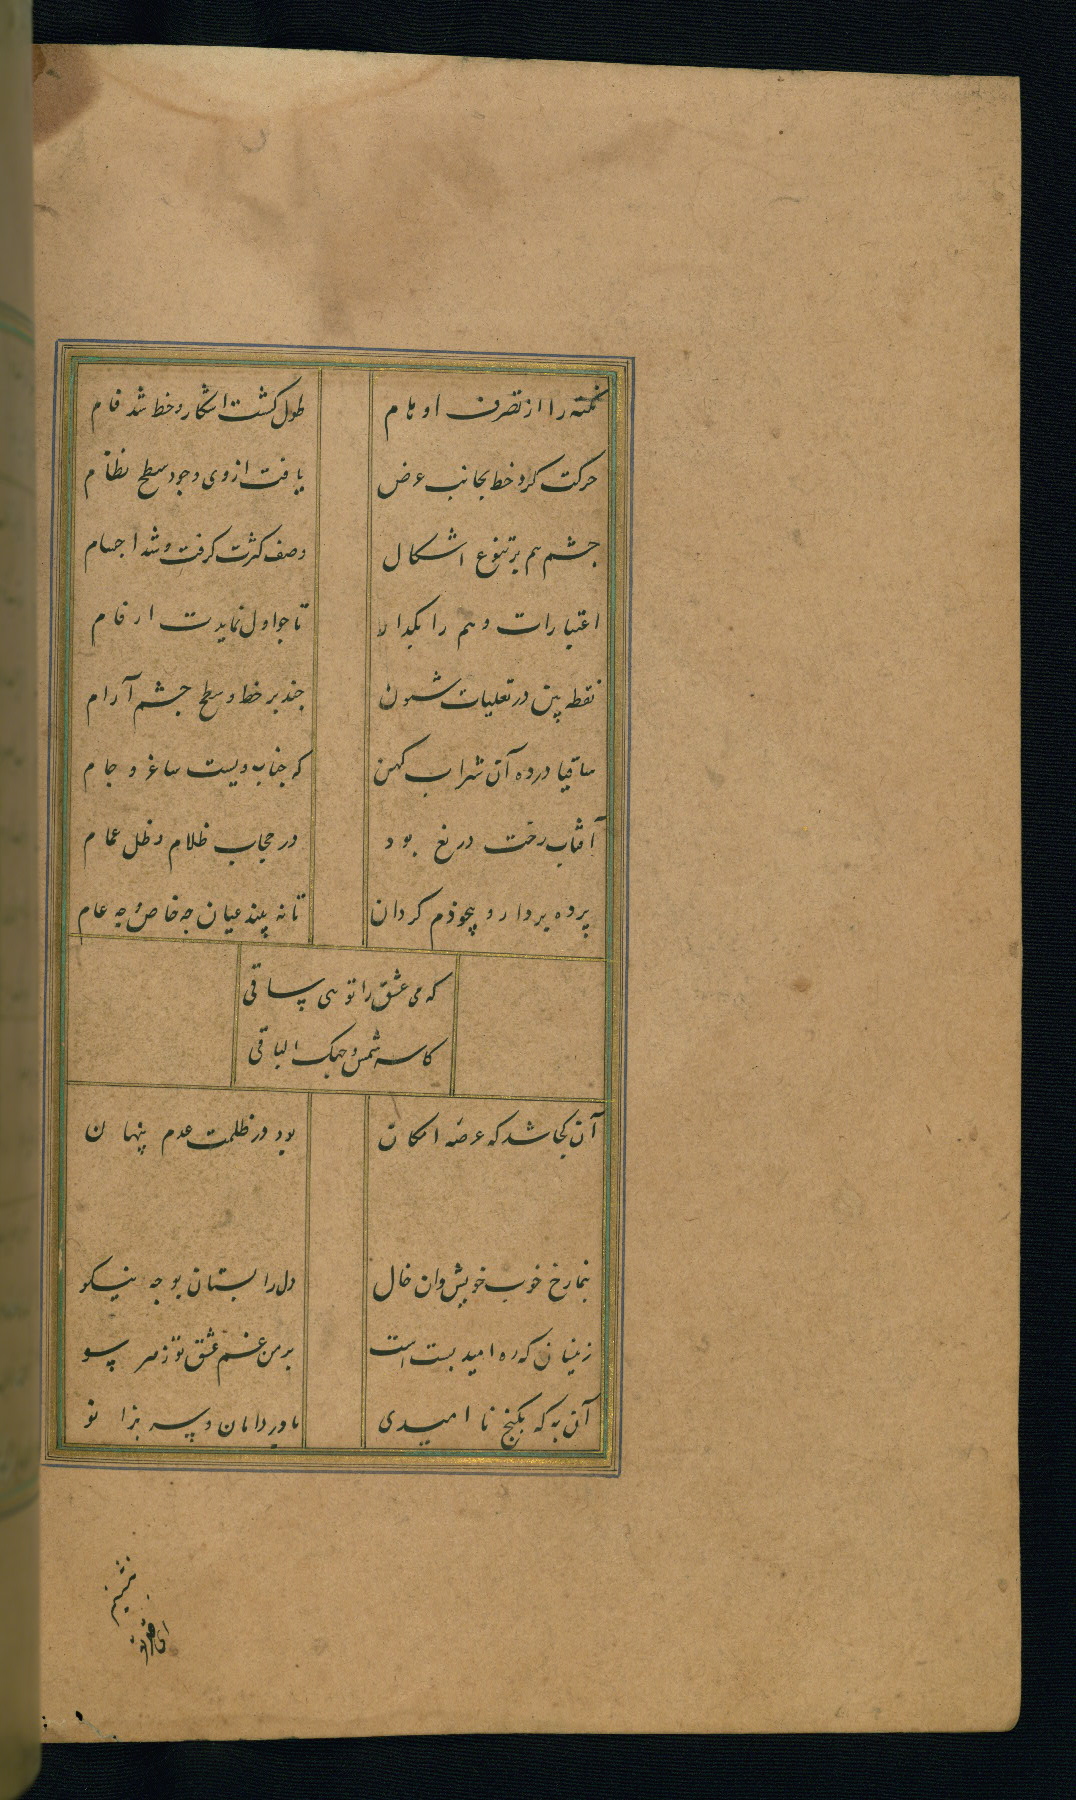 نکته را از تصرف اوهام طول گشت اشکار و خط شد فام
حرکت کرد خط بجانب عرض یافت از وی وجود سطح نظام
جشم هم بر تنوع اشکال وصف کثرت کرفت و شد اجسام
اعتبارات وهم را بگذار تا جو اول نمایدت ارقام
نقطه بین در تعلیات شون جند بر خط و سطح جشم آرام
ساقیا در ده آن شراب کهن که جناب ویست ساغر و جام
آفتاب رخت دریغ بود در حجاب ظلام و ظل غمام
پرده بردار و بیخودم کردان تا نه بیند عیان جه خاص و جه عام
که می عشق را توىی ساقی
کاسه شمس وجهک الباقی
آن کجا شد که عرصه امکان بود در ظلمت عدم پنهان
بنما رخ خوب خویش وان خال دل را بستان بوجه نیکو
زینسان که ره امید بست است بر من غم عشق تو ز هر سو
آن به که بکنج نا امیدی ما و در دامان و سر بزانو
بنشینم